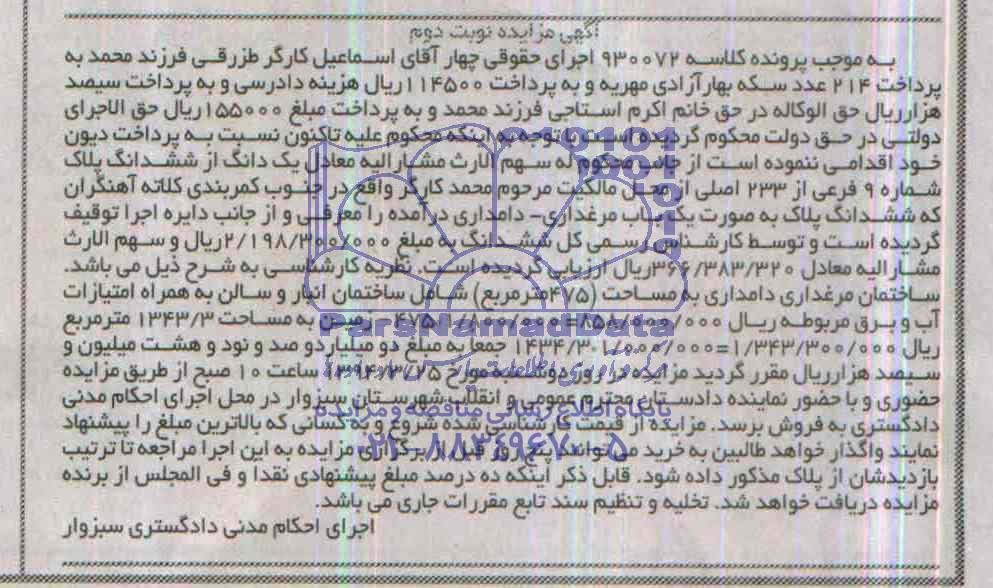 آگهی مزایده نوبت دوم
به موجب پرونده کلاسه ۹۳۰۰۷۲ اجرای حقوقی چهار آقای اسماعیل کارگر طزرقی فرزند محمد به
پرداخت ۲۱۴ عدد سکه بهار آزادی مهریه و به پرداخت ۱۱۴۵۰۰ ریال هزینه دادرسی و به پرداخت سیصد
هزار ریال حق الوکاله در حق خانم اکرم استاجی فرزند محمد و به پرداخت مبلغ ۱۵۵۰۰۰ ریال حق الاجرای
دولتی در حق دولت محکوم گردیده است با توجه به اینکه محکوم علیه تاکنون نسبت به پرداخت دیون
خود اقدامی ننموده است از جانب محکوم له سهم الارث مشارالیه معادل یک دانگ از ششدانگ پلاک
شماره ۹ فرعی از ۲۳۳ اصلی از محل مالکیت مرحوم محمد کارگر واقع در جنوب کمربندی کلاته آهنگران
که ششدانگ پلاک به صورت یک باب مرغداری- دامداری درآمده را معرفی و از جانب دایره اجرا توقیف
گردیده است و توسط کارشناس رسمی کل ششدانگ به مبلغ ۲/۱۹۸/۳۰۰/۰۰۰ ریال و سهم الارث
مشارالیه معادل ۳۶۶/۳۸۳/۳۲۰ ریال ارزیابی گردیده است. نظریه کارشناسی به شرح ذیل می باشد.
ساختمان مرغداری دامداری به مساحت (۴۷۵مترمربع) شامل ساختمان انبار و سالن به همراه امتیازات
آب و برق مربوطه ریال ۸۵۸/۰۰۰/۰۰۰= زمین به مساحت ۱۳۴۳/۳ مترمربع
ریال ۱/۳۴۳/۳۰۰/۰۰۰= جمعا به مبلغ دو میلیارد و صد و نود و هشت میلیون و
سیصد هزار ریال مقرر گردید مزایده در روز دوشنبه مورخ ۱۳۹۴/۳/۲۵ ساعت ۱۰ صبح از طریق مزایده
حضوری و با حضور نماینده دادستان محترم عمومی و انقلاب شهرستان سبزوار در محل اجرای احکام مدنی
دادگستری به فروش برسد. مزایده از قیمت کارشناسی شده شروع و به کسانی که بالاترین مبلغ را پیشنهاد
نمایند واگذار خواهد طالبین به خرید می توانند پنج روز قبل از برگزاری مزایده به این اجرا مراجعه تا ترتیب
بازدیدشان از پلاک مذکور داده شود. قابل ذکر اینکه ده درصد مبلغ پیشنهادی نقدا و فی المجلس از برنده
مزایده دریافت خواهد شد. تخلیه و تنظیم سند تابع مقررات جاری می باشد.
اجرای احکام مدنی دادگستری سبزوار
ParsNamadData
پایگاه اطلاع رسانی مناقصه و مزایده
۰۲۱-۸۸۳۴۹۶۷۰-۵